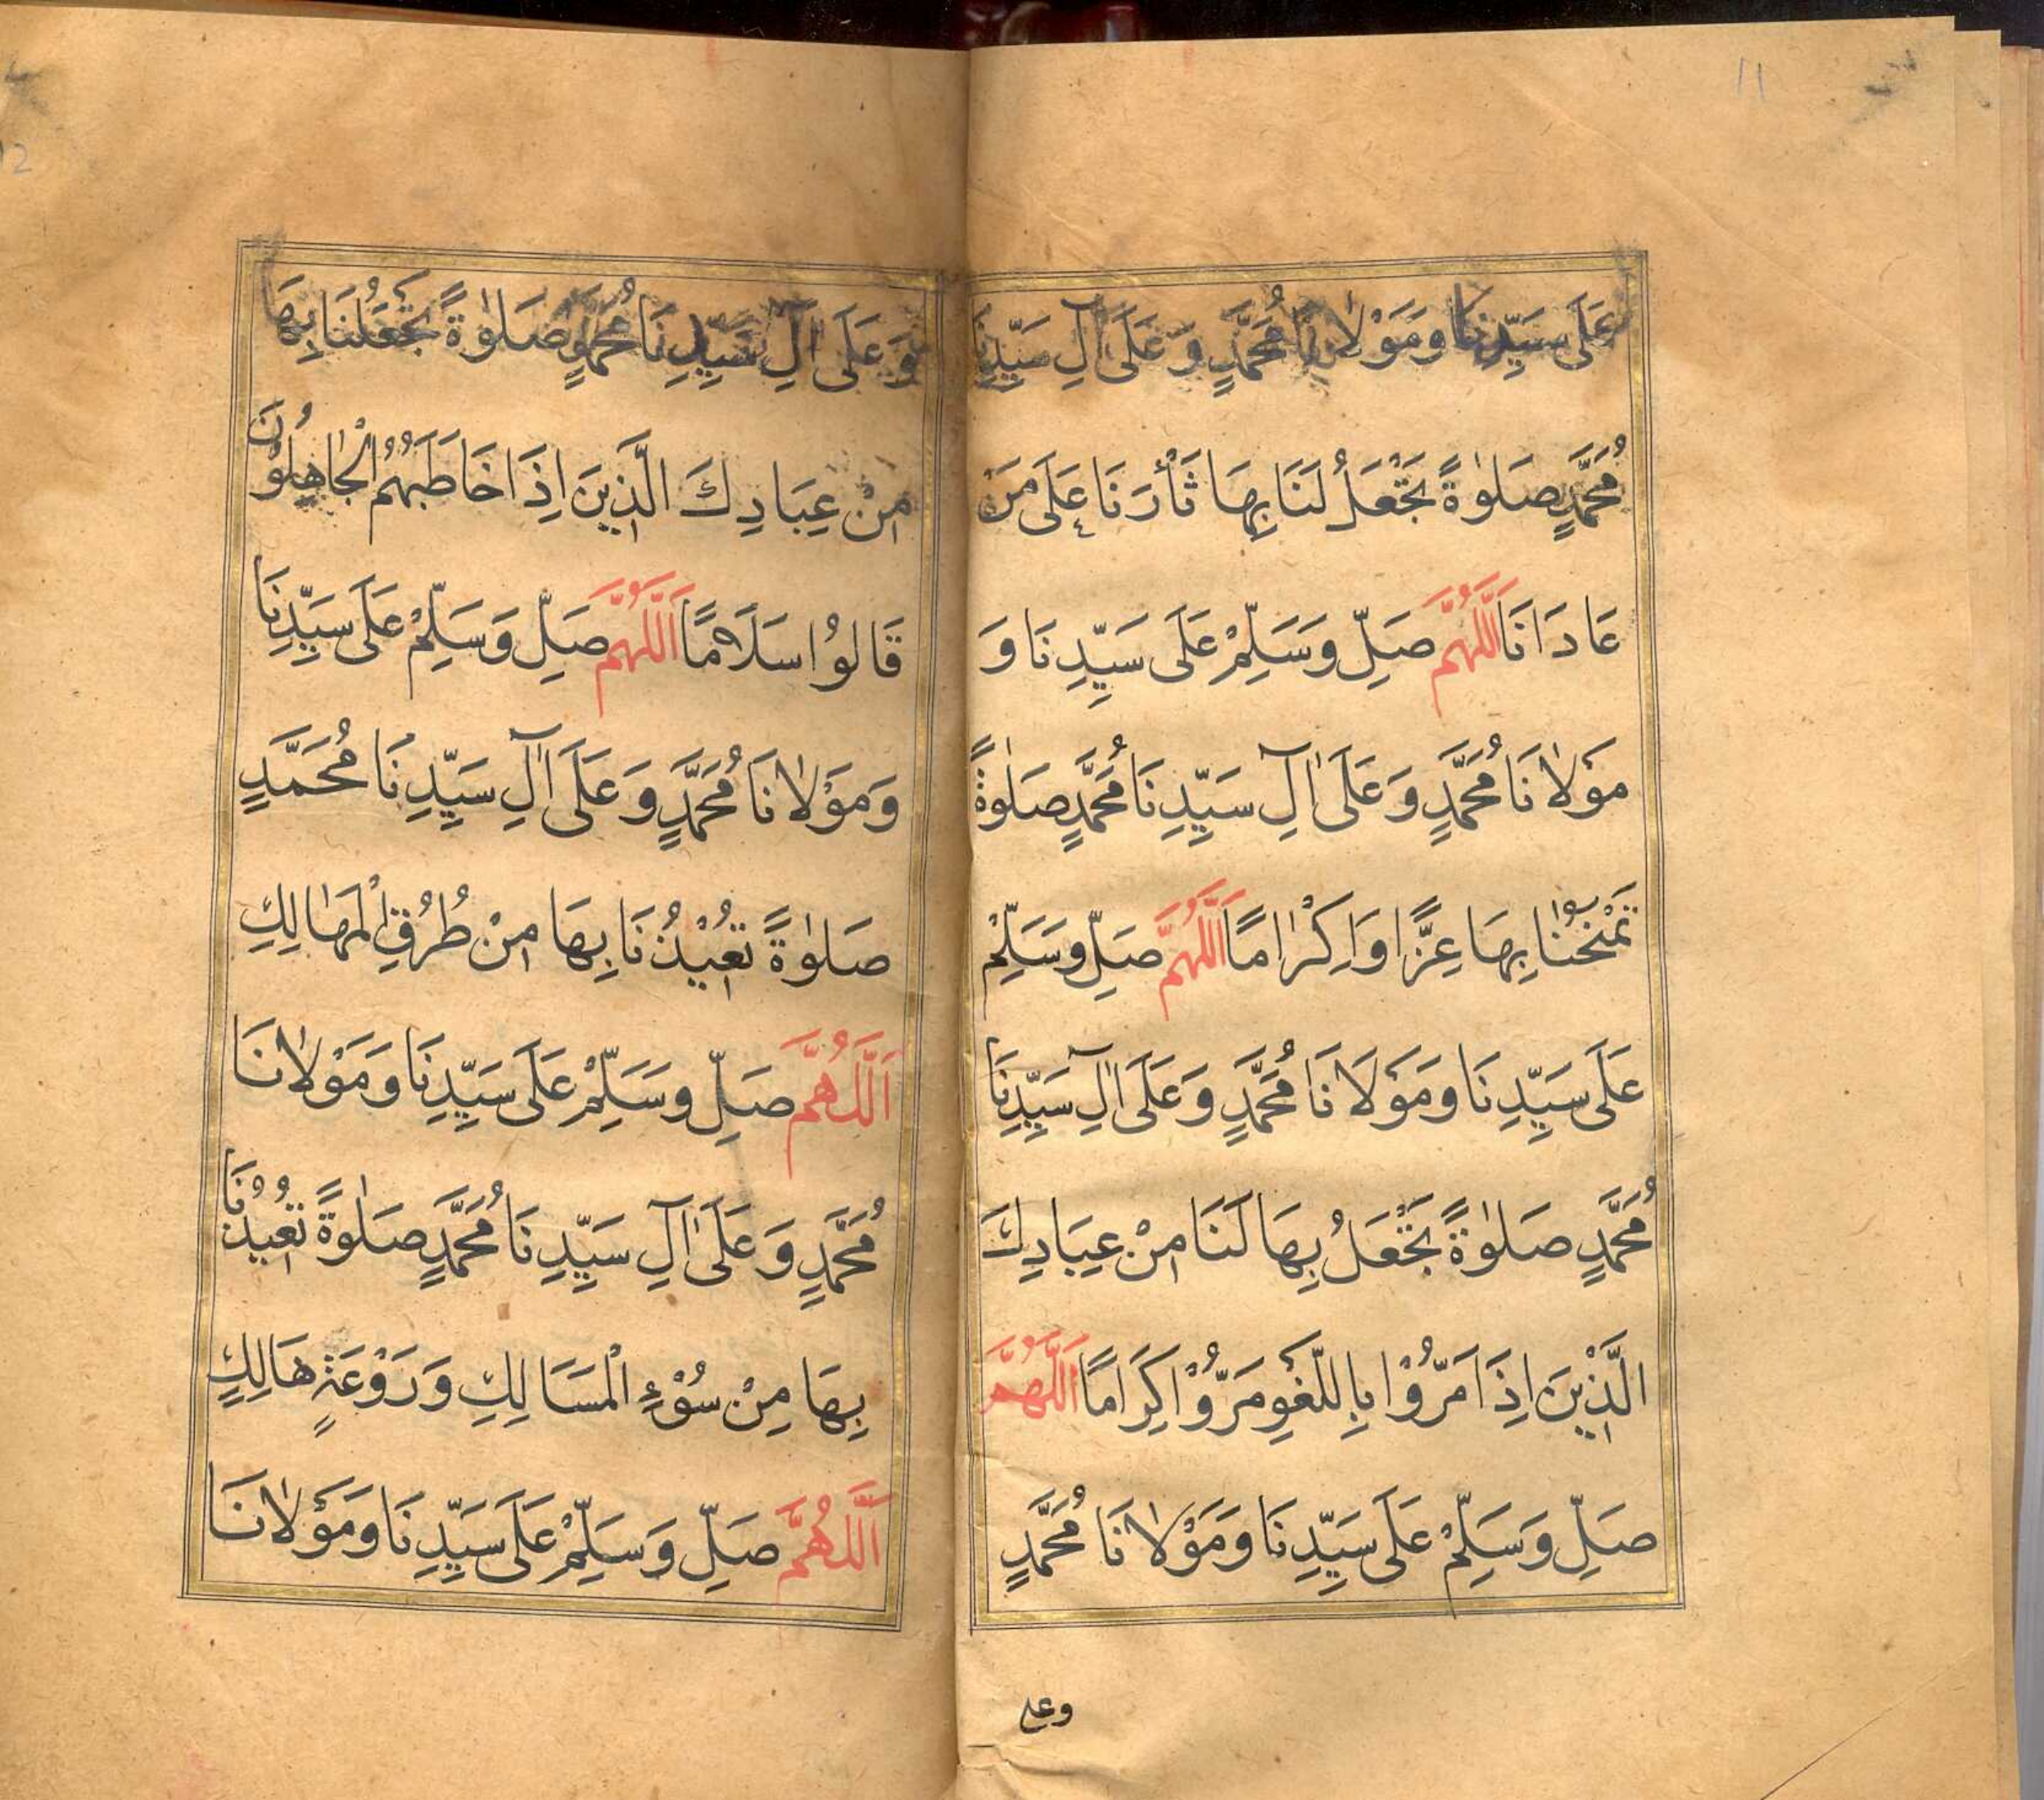 11
عَلَى سَيِّدِنَا وَمَوْلٰانَا مُحَمَّدٍ وَّعَلَى اٰلِ سَيِّدِنَا
مُحَمَّدٍ صَلٰوةً تَجْعَلُ لَنَا بِهَا ثَأْرَنَا عَلَى مَنْ
عَادَانَا اَللَّهُمَّ صَلِّ وَسَلِّمْ عَلَى سَيِّدِنَا وَ
مَوْلٰانَا مُحَمَّدٍ وَعَلَى اٰلِ سَيِّدِنَا مُحَمَّدٍ صَلٰوةً
تَمْنَحُنَا بِهَا عِزًّا وَاِكْرٰامًا اَللَّهُمَّ صَلِّ وَسَلِّمْ
عَلَى سَيِّدِنَا وَمَوْلَانَا مُحَمَّدٍ وَعَلَى اٰلِ سَيِّدِنَا
مُحَمَّدٍ صَلٰوةً تَجْعَلُ بِهَا لَنَا مِنْ عِبَادِكَ
الَّذِيْنَ اِذَا مَرُّوْا بِاللَّغْوِ مَرُّوْا كِرَامًا اَللّٰهُمَّ
صَلِّ وَسَلِّمْ عَلَى سَيِّدِنَا وَمَوْلٰانَا مُحَمَّدٍ
وعلى
12
وَعَلَى اٰلِ سَيِّدِنَا مُحَمَّدٍ صَلٰوةً تَجْعَلُنَا بِهَا
مِنْ عِبَادِكَ الَّذِينَ اِذَا خَاطَبَهُمُ الْجٰاهِلُوْنَ
قَالُوْا سَلَامًا اَللَّهُمَّ صَلِّ وَسَلِّمْ عَلَى سَيِّدِنَا
وَمَوْلٰانَا مُحَمَّدٍ وَعَلَى اٰلِ سَيِّدِنَا مُحَمَّدٍ
صَلٰوةً تُعِيْذُنَا بِهَا مِنْ طُرُقِ الْمَهٰالِكِ
اَللَّهُمَّ صَلِّ وَسَلِّمْ عَلَى سَيِّدِنَا وَمَوْلٰانَا
مُحَمَّدٍ وَعَلَى اٰلِ سَيِّدِنَا مُحَمَّدٍ صَلٰوةً تُعِيْذُنَا
بِهَا مِنْ سُوْءِ الْمَسَالِكِ وَرَوْعَةِ هَالِكٍ
اَللَّهُمَّ صَلِّ وَسَلِّمْ عَلَى سَيِّدِنَا وَمَوْلٰانَا